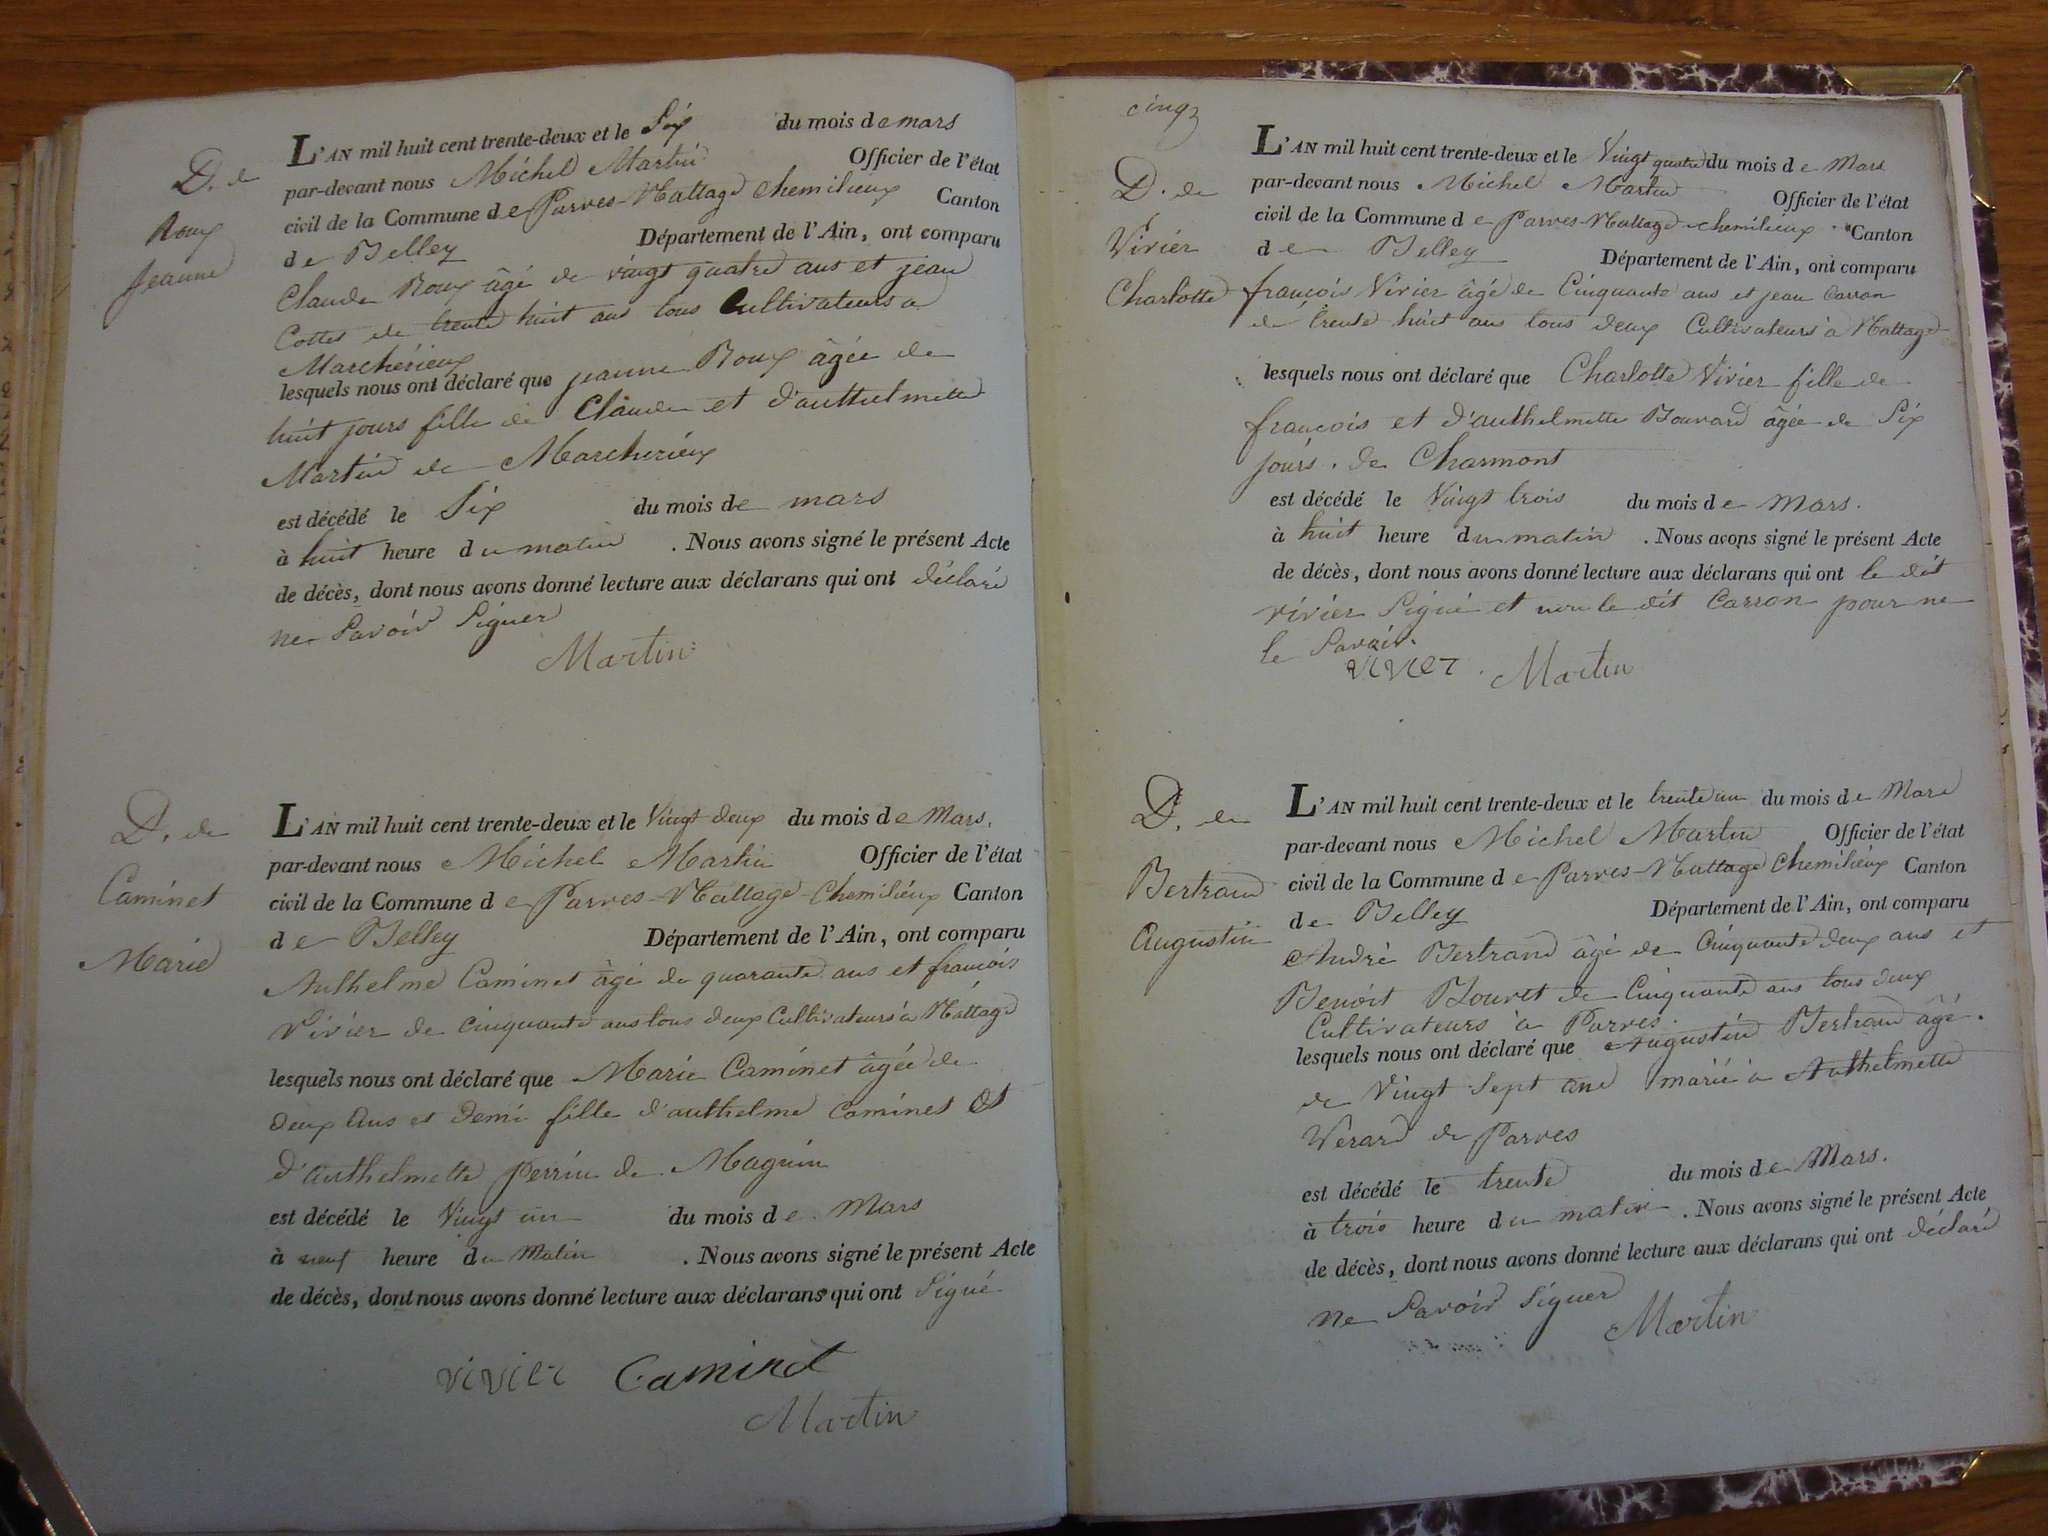 D. de
Roux
Jeanne
L'AN mil huit cent trente-deux et le Six du mois de mars
par-devant nous Michel Martin Officier de l'état
civil de la Commune de Parves-Nattage Chemilieux Canton
de Belley Département de l'Ain, ont comparu
Claude Roux âgé de vingt quatre ans et jean
Cottet de trente huit ans tous Cultivateurs a
Marcherieux
lesquels nous ont déclaré que jeanne Roux âgée de
huit jours fille de Claude et d'anthelmette
Martin de Marcherieux
est décédé le Six du mois de mars
à huit heure du matin . Nous avons signé le présent Acte
de décès, dont nous avons donné lecture aux déclarans qui ont déclaré
ne Savoir Signer
Martin
D. de
Caminet
Marie
L'AN mil huit cent trente-deux et le Vingt deux du mois de Mars.
par-devant nous Michel Martin Officier de l'état
civil de la Commune de Parves-Nattage-Chemilieux Canton
de Belley Département de l'Ain, ont comparu
Anthelme Caminet âgé de quarante ans et françois
Vivier de cinquante ans tous deux Cultivateurs à Nattage
lesquels nous ont déclaré que Marie Caminet âgée de
deux Ans et Demi fille d'anthelme Caminet et
d'anthelmette perrin de
est décédé le Vingt un du mois de Mars
à neuf heure du Matin . Nous avons signé le présent Acte
de décès, dont nous avons donné lecture aux déclarans qui ont Signé
vivier Caminet
Martin
cinq
D. de
Vivier
Charlotte
L'AN mil huit cent trente-deux et le Vingt quatre du mois de Mars
par-devant nous Michel Martin Officier de l'état
civil de la Commune de Parves-Nattage-chemilieux Canton
de Belley Département de l'Ain, ont comparu
françois Vivier âgé de Cinquante ans et jean Carron
de trente huit ans tous deux Cultivateurs à Nattage
lesquels nous ont déclaré que Charlotte Vivier fille de
françois et d'anthelmette Bouvard âgée de Six
jours. de Charmont
est décédé le Vingt trois du mois de Mars.
à huit heure du matin . Nous avons signé le présent Acte
de décès, dont nous avons donné lecture aux déclarans qui ont le dit
vivier Signé et non le dit Carron pour ne
le Savoir.
vivier. Martin
D. de
Bertrand
Augustin
L'AN mil huit cent trente-deux et le trente un du mois de Mars
par-devant nous Michel Martin Officier de l'état
civil de la Commune de Parves-Nattage Chemilieux Canton
de Belley Département de l'Ain, ont comparu
André Bertrand âgé de Cinquante deux ans et
Benoit de Cinquante ans tous deux
Cultivateurs à Parves.
lesquels nous ont déclaré que Augustin Bertrand âgé.
de Vingt Sept ans marié à Anthelmette
de Parves
est décédé le trente du mois de Mars.
à trois heure du matin . Nous avons signé le présent Acte
de décès, dont nous avons donné lecture aux déclarans qui ont déclaré
ne Savoir Signer
Martin